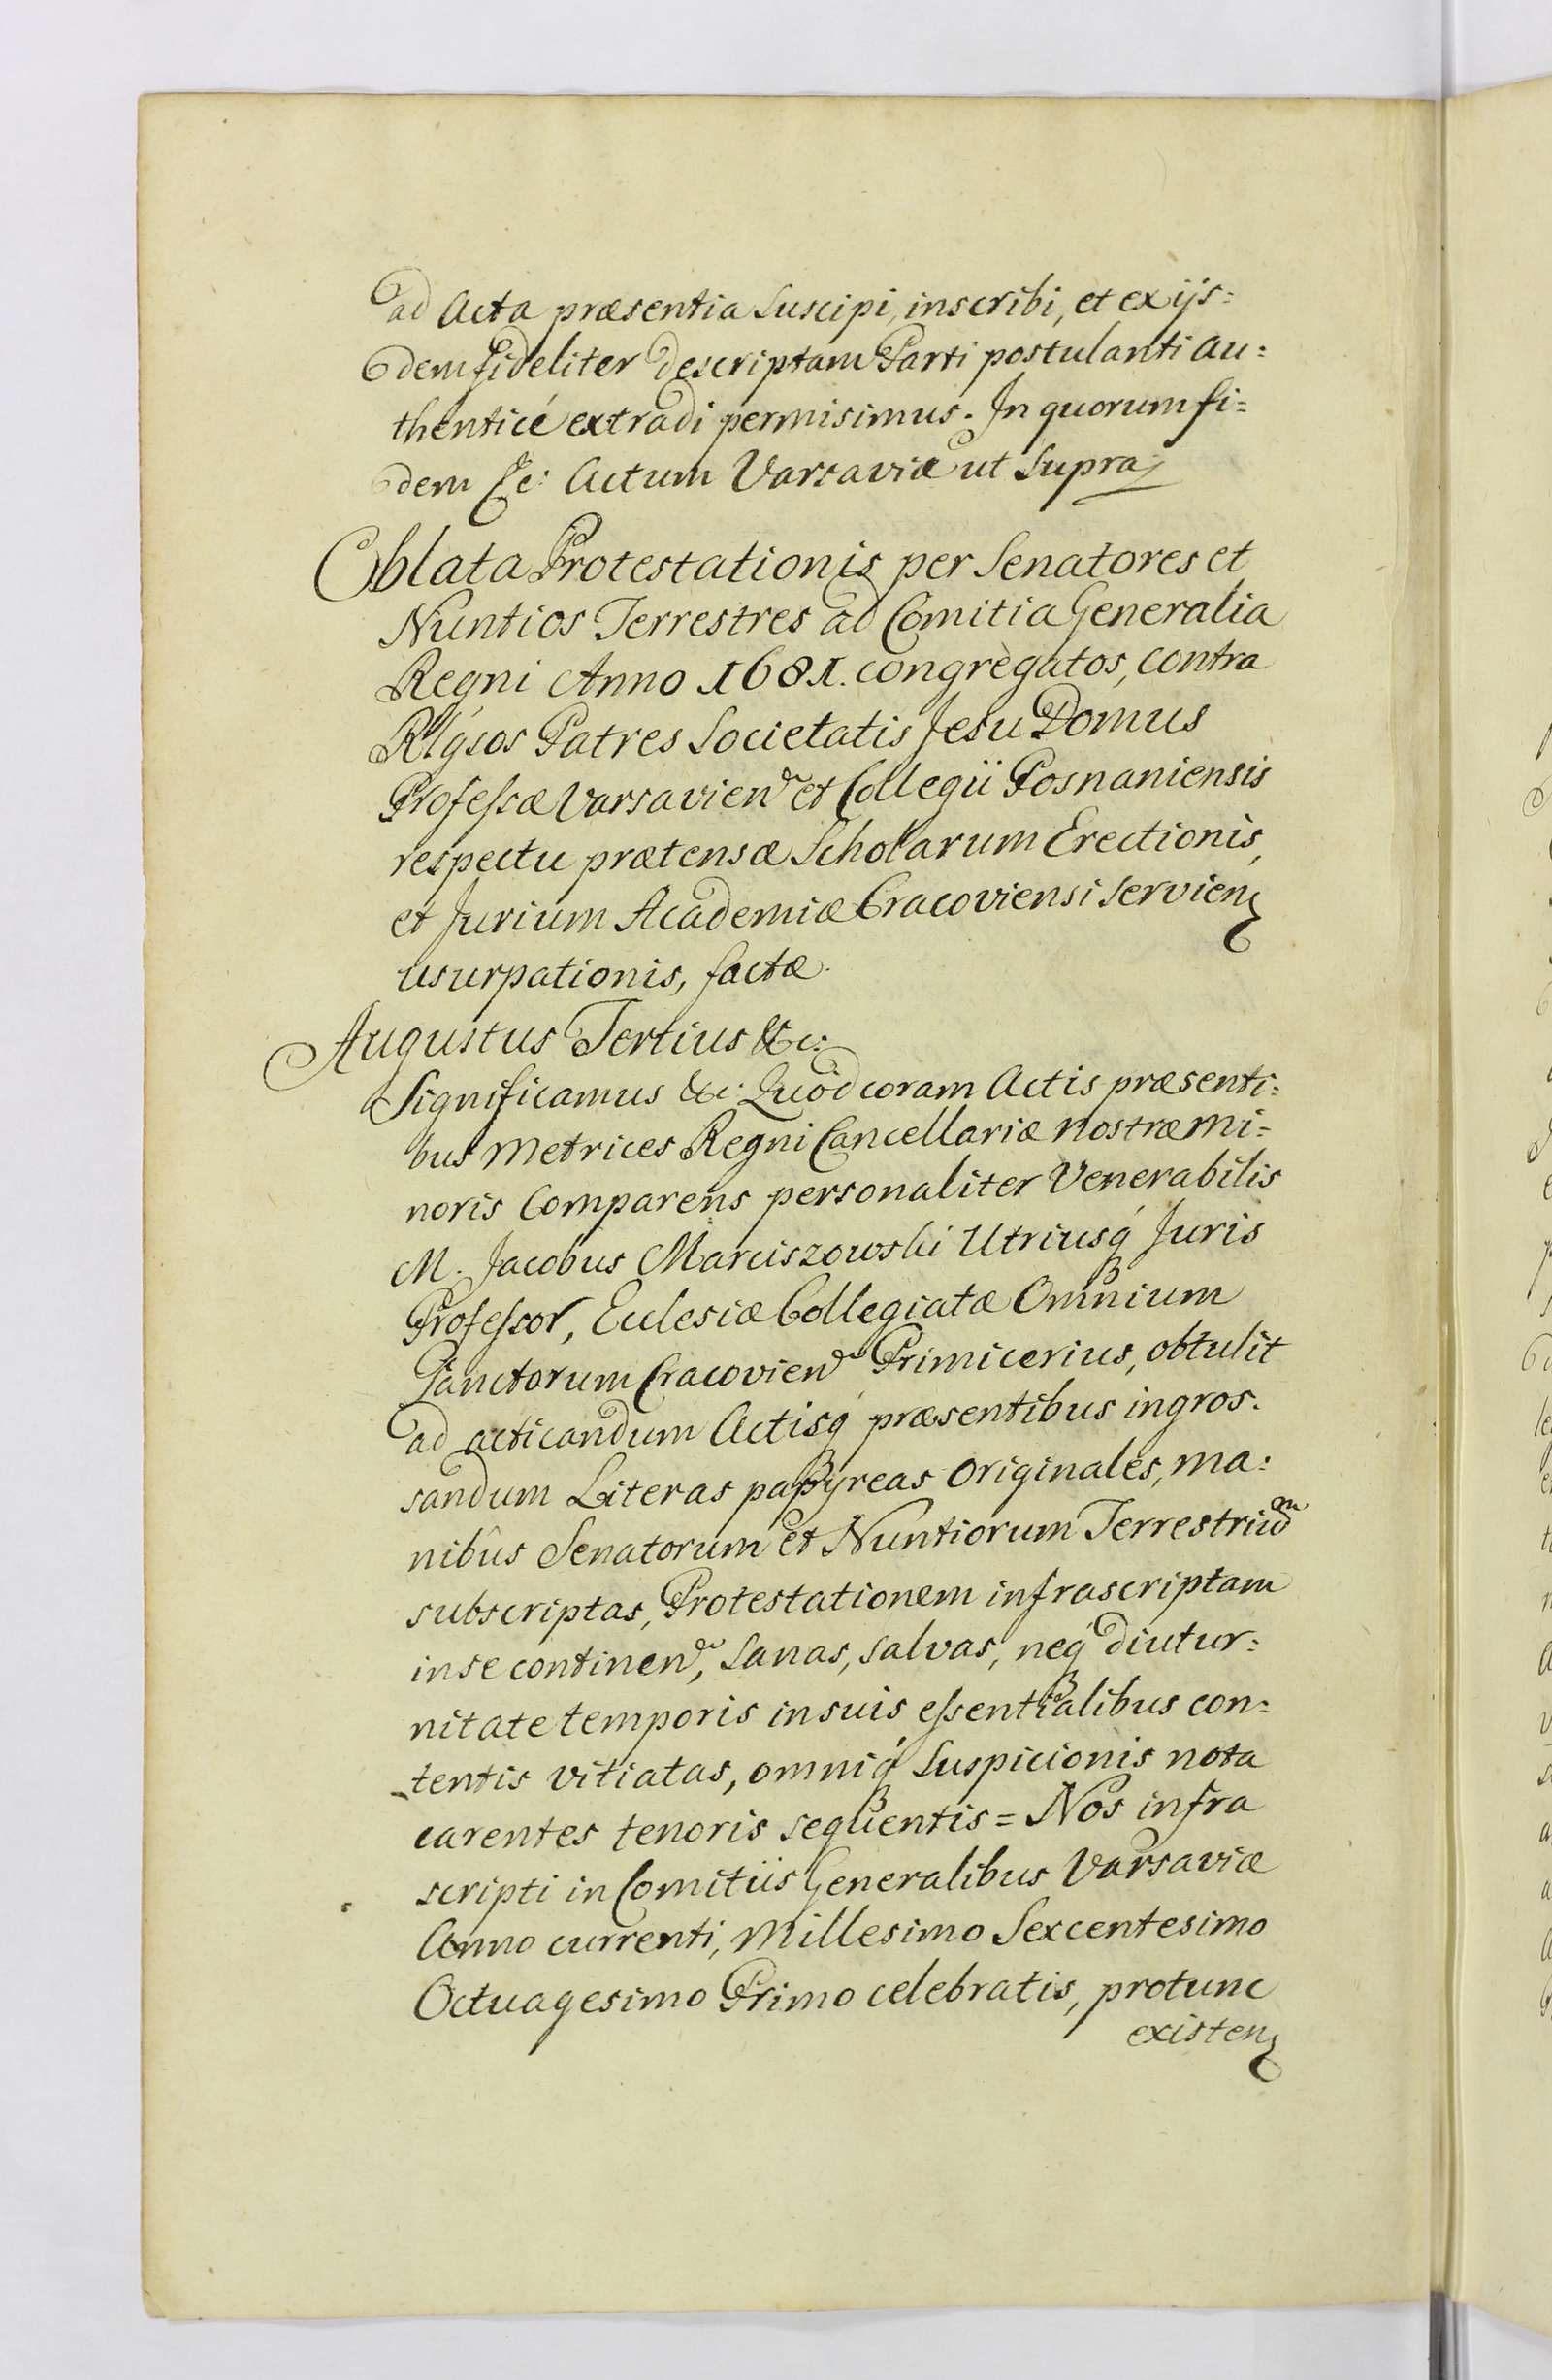 ad Acta præsentia Suscipi, inscribi, et ex ijs=
dem fideliter descriptam Parti postulanti au=
thenticé extradi permisimus. In quorum fi=
dem &c: Actum Varsaviæ ut Supra
Oblata Protestationis per Senatores et
Nuntios Terrestres ad Comitia Generalia
Regni Anno 1681. congregatos, contra
Rlgsos Patres Societatis Jesu Domus
Professæ Varsavien et Collegii Posnaniensis
respectu prætensæ Scholarum Erectionis,
et Jurium Academiæ Cracoviensi servien
usurpationis, factæ.
Augustus Tertius &c:
Significamus &c: Quod coram Actis præsenti=
bus Metrices Regni Cancellariæ nostræ Mi=
noris Comparens personaliter Venerabilis
M. Jacobus Marciszowski Utriusq Juris
Professor, Ecclesiæ Collegiatæ Omnium
Sanctorum Cracovien Primicerius, obtulit
ad acticandum Actisq præsentibus ingros=
sandum Literas papyreas Originales, ma=
nibus Senatorum et Nuntiorum Terrestrium
subscriptas, Protestationem infrascriptam
in se continen, Sanas, salvas, neq diutur=
nitate temporis in suis essentialibus con=
tentis vitiatas, omniq Suspicionis nota
carentes tenoris sequentis = Nos infra
scripti in Comitiis Generalibus Varsaviæ
Anno currenti, Millesimo Sexcentesimo
Octuagesimo Primo celebratis, protunc
existen